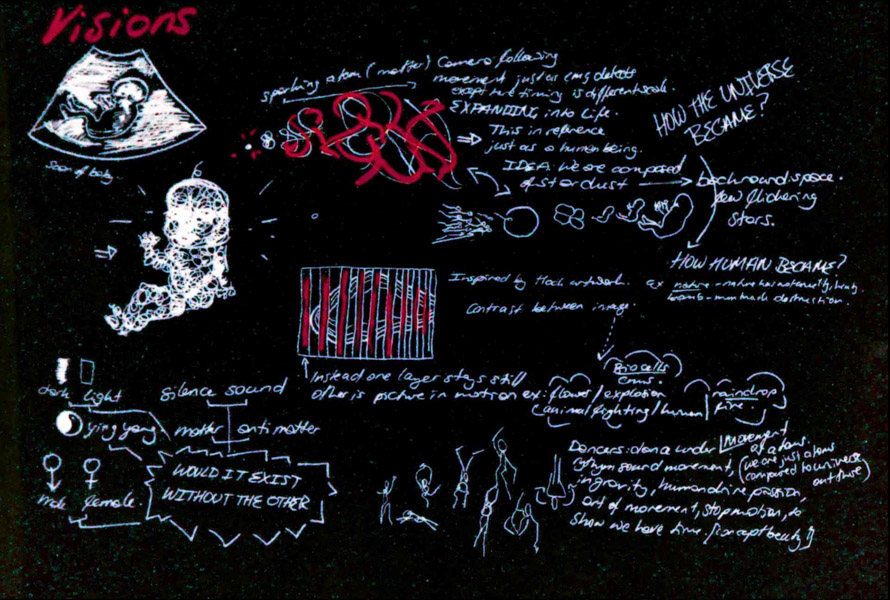 Visions
sparking atom (matter) Camera following
movement just as cmg detects
except the timing is different scale.
EXPANDING into life.
This in reference
just as a human being.
IDEA: we are composed
of stardust
HOW THE UNIVERSE
BECAME?
background: space.
few flickering
stars.
scan of baby
HOW HUMAN BECAME?
Inspired by Hoch artwork. ex nature - nature has maternity,
bomb - man made destruction.
Contrast between image.
Instead one layer stays still
other is picture in motion ex: flower / explotion
(animal fighting / human)
Bio cells
raindrop
fire
dark light
silence sound
ying yang matter anti matter
male female
WOULD IT EXIST
WITHOUT THE OTHER
Dancers: dance under movement
of atoms.
rythym sound movement, (we are just atoms
compared to universe
in gravity, human drive passion,
art of movement, stop motion, to
show we have time. [concept beauty]